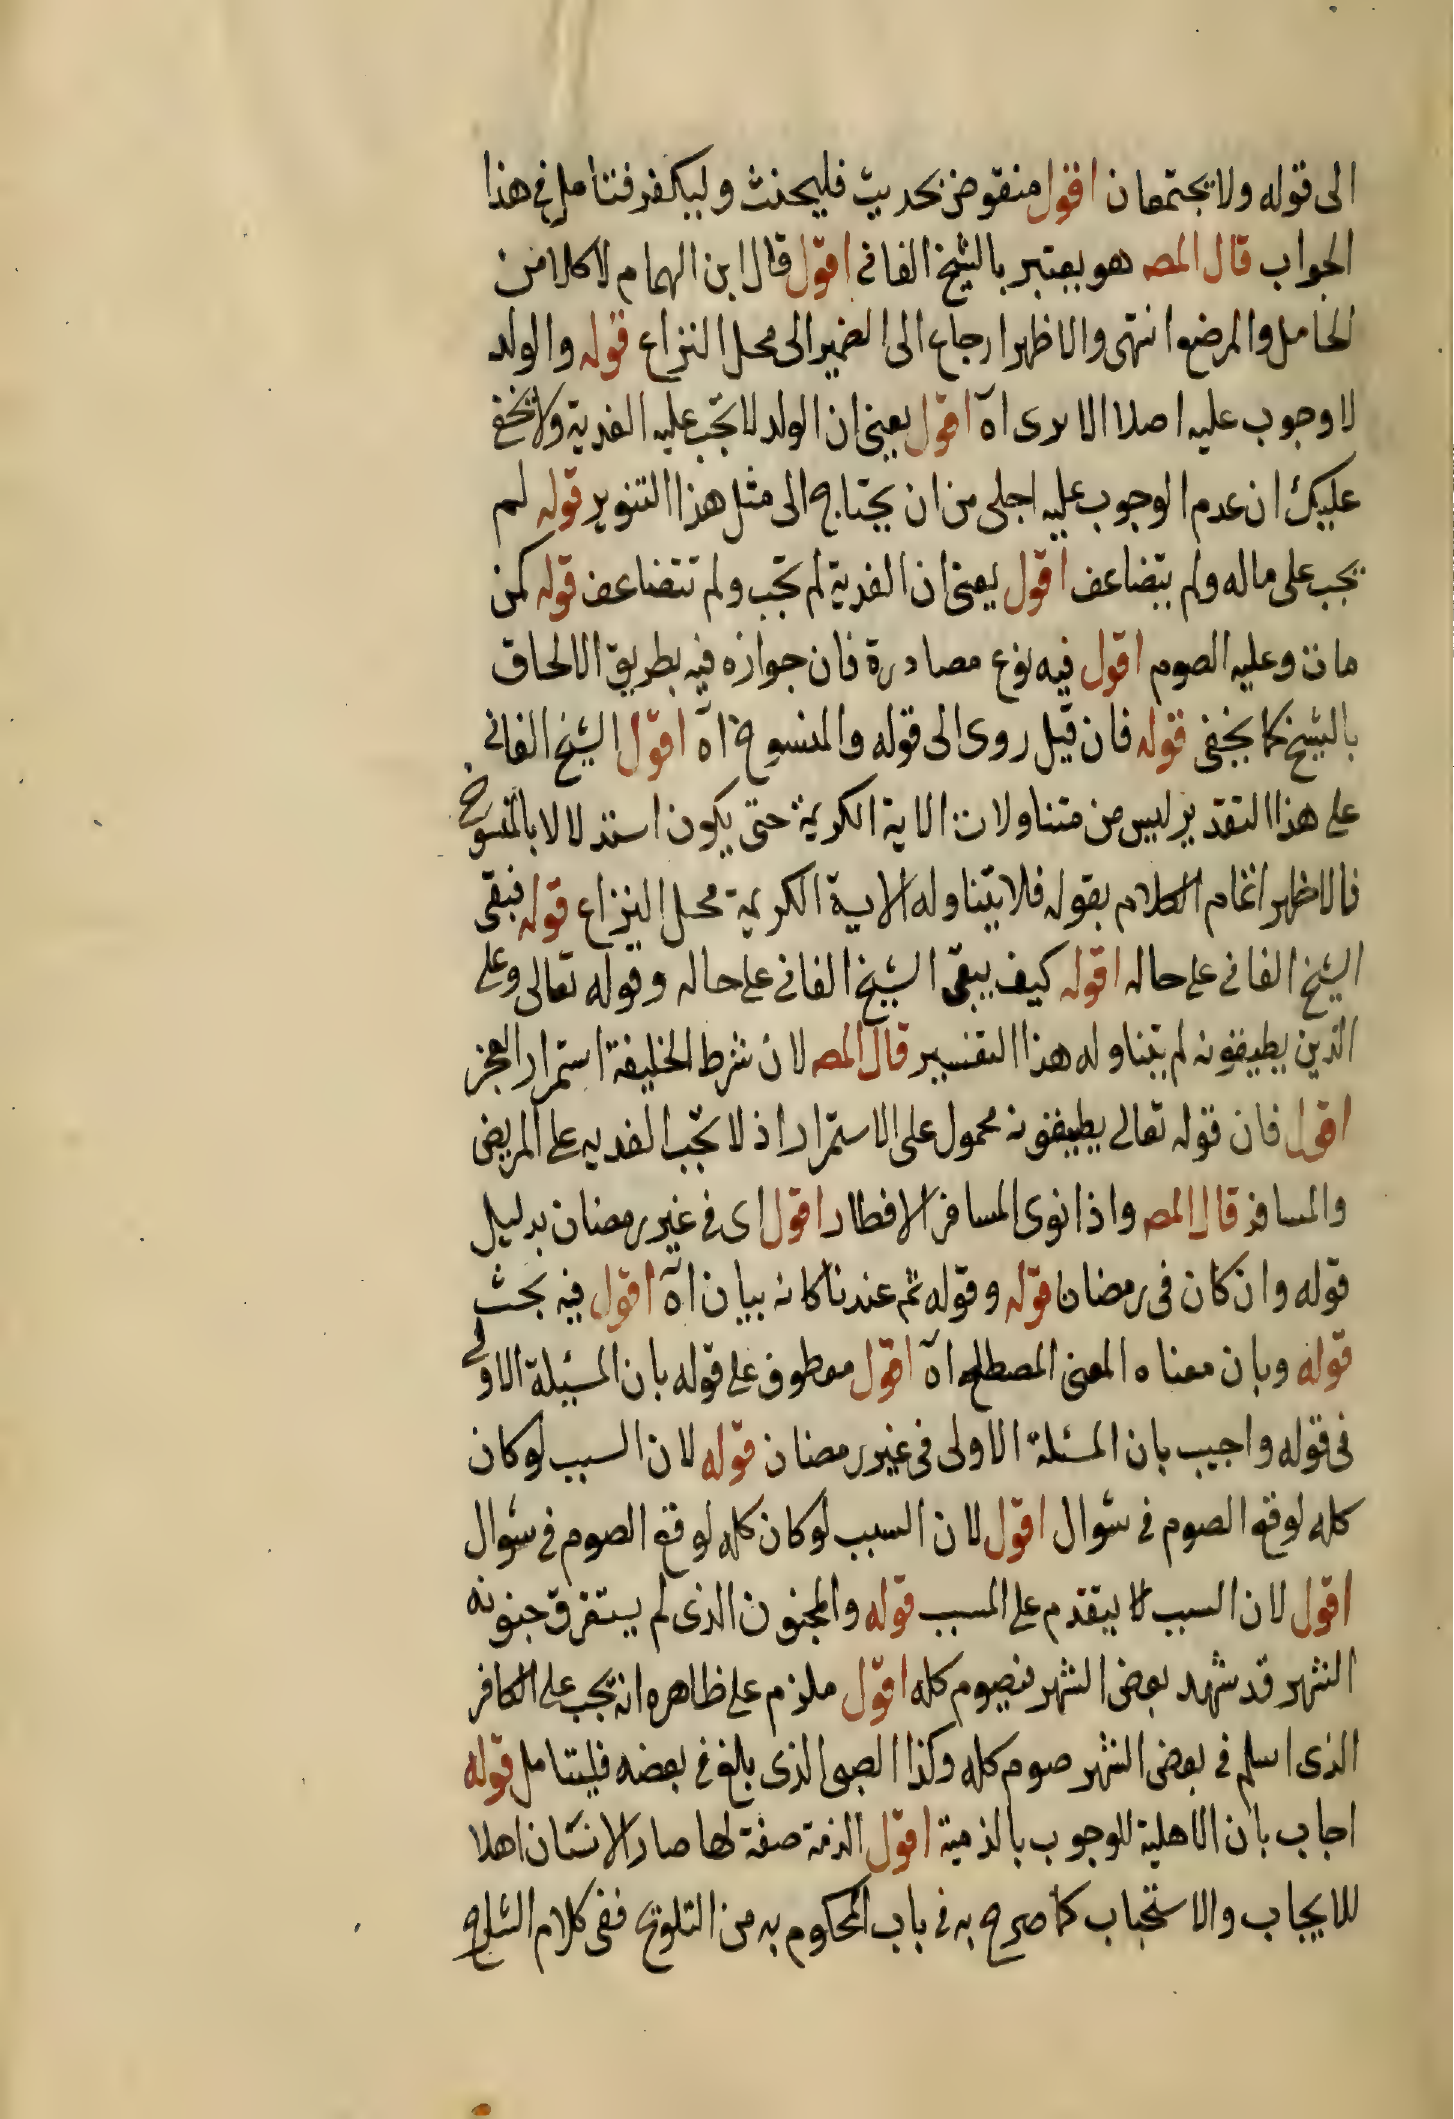 الى قوله ولا يجتمعان اقول منقوض بحديث فليحنث وليكفر فتامل في هذا
الجواب قال المص هو يعتبر بالشيخ الفانى اقول قال ابن الهمام لا كلا من
الحامل والمرضع انتهى والاظهر ارجاع الى الضمير الى محل النزاع قوله والولد
لا وجوب عليه اصلا الا يرى اه اقول يعنى ان الولد لا يجب عليه الفدية ولا يخفى
عليك ان عدم الوجوب عليه اجلى من ان يحتاج الى مثل هذا التنوير قوله لم
يجب على ماله ولم يتضاعف اقول يعنى ان الفدية لم تجب ولم تتضاعف قوله كمن
مات وعليه الصوم اقول فيه نوع مصادرة فان جوازه فيه بطريق الالحاق
بالشيخ كما يخفى قوله فان قيل روى الى قوله والمنسوخ اه اقول الشيخ الفانى
على هذا التقدير ليس من متناولات الاية الكريمة حتى يكون استدلالا بالمنسوخ
فالاظهر اتمام الكلام بقوله فلا يتناوله الاية الكريمة محل النزاع قوله فبقى
الشيخ الفانى على حاله اقوله كيف يبقى الشيخ الفانى على حاله وقوله تعالى وعلى
الذين يطيقونه لم يتناوله هذا التفسير قال المص لان شرط الخليفة استمرار العجز
اقول فان قوله تعالى يطيقونه محمول على الاستمرار اذ لا تجب الفديه على المريض
والمسافر قال المص واذا نوى المسافر الافطار اقول اى فى غير رمضان بدليل
قوله وان كان فى رمضان قوله وقوله ثم عندنا كانه بيان اه اقول فيه بحث
قوله وبان معناه المعنى المصطلح اه اقول معطوف على قوله بان المسئلة الاولى
فى قوله واجيب بان المسئلة الاولى فى غير رمضان قوله لان السبب لو كان
كله لوقع الصوم فى شوال اقول لان السبب لو كان كله لوقع الصوم فى شوال
اقول لان السبب لا يتقدم على المسبب قوله والمجنون الذى لم يستغرق جنونه
الشهر قد شهد بعض الشهر فيصوم كله اقول ملزم على ظاهره انه يجب على الكافر
الذى اسلم فى بعض الشهر صوم كله وكذا الصبى الذى بلغ فى بعضه فليتامل قوله
اجاب بان الاهلية للوجوب بالذمية اقول الذمة صفة لها صار الانسان اهلا
للايجاب والاستحباب كما صرح به فى باب المحكوم به من التلويح ففى كلام الشارح